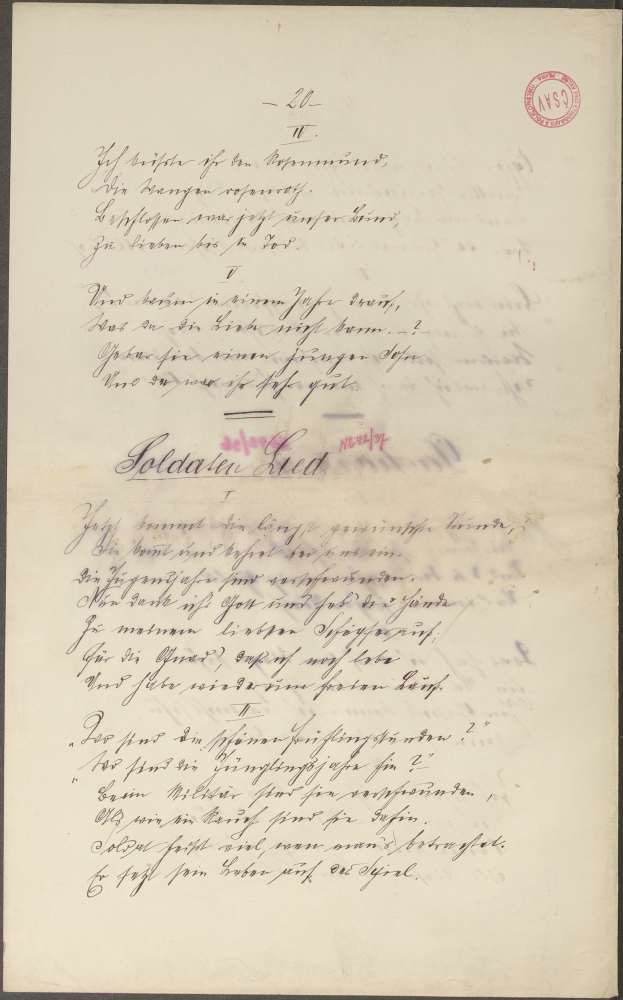 – 20 –
IV.
Ich küßte ihr den Rosenmund,
Die Wangen rosenroth.
Beschlossen war jetzt unser Bund,
Zu lieben bis in Tod.
V
Und kaum in einem Jahre drauf,
Was da die Liebe nicht kann. – ?
Gebar sie einen jungen Sohn
Und da war ihr sehr gut.
Soldaten Lied
I
Jetzt kommt die längst gewünschte Stunde,
Sie kommt und kehret bei uns ein.
Die Jugendjahre sind verschwunden.
Nun dank ich Gott und heb' die Hände
Zu meinem liebsten Schöpfer auf,
Für die Gnad', daß ich noch lebe
Und habe wiederum freien Lauf.
II
„Wo sind die schönen Frühlingstunden?"
„Wo sind die Jünglingsjahre hin?"
Beim Militär sind sie verschwunden,
Als wie ein Rauch sind sie dahin.
Soldat heißt viel, wen man's betrachtet.
Er setzt sein Leben auf das Spiel.
ČSAV